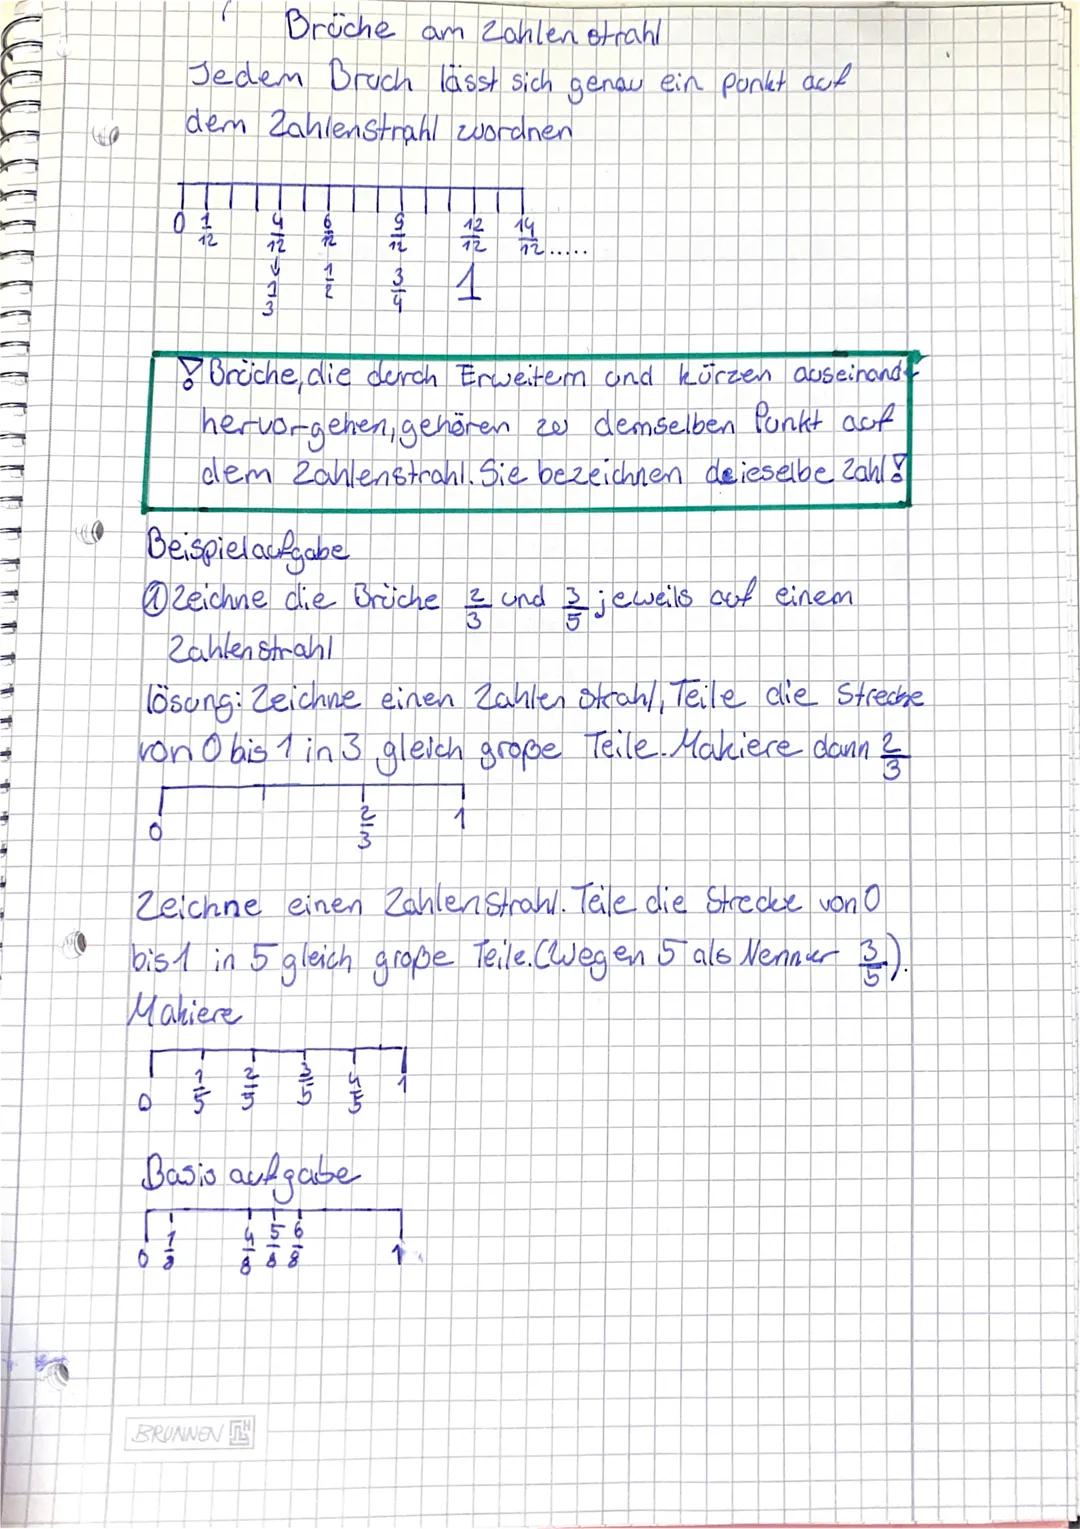 Brüche am Zahlenstrahl
Jedem Bruch lässt sich genau ein punkt auf
dem Zahlenstrahl zuordnen
0 1/12 4/12 6/12 9/12 12/12 14/12 .....
↓
1/3 1/2 3/4 1
! Brüche, die durch Erweitern und kürzen auseinand
hervorgehen, gehören zu demselben Punkt auf
dem Zahlenstrahl. Sie bezeichnen dieselbe Zahl!
Beispielaufgabe
① Zeichne die Brüche 2/3 und 3/5 jeweils auf einem
Zahlenstrahl
lösung: Zeichne einen Zahlenstrahl, Teile die Strecke
von 0 bis 1 in 3 gleich große Teile. Makiere dann 2/3
0 2/3 1
Zeichne einen Zahlenstrahl. Teile die Strecke von 0
bis 1 in 5 gleich große Teile. (Wegen 5 als Nenner 3/5).
Makiere
0 1/5 2/5 3/5 4/5 1
Basis aufgabe
0 1/8 4/8 5/8 6/8 1
BRUNNEN